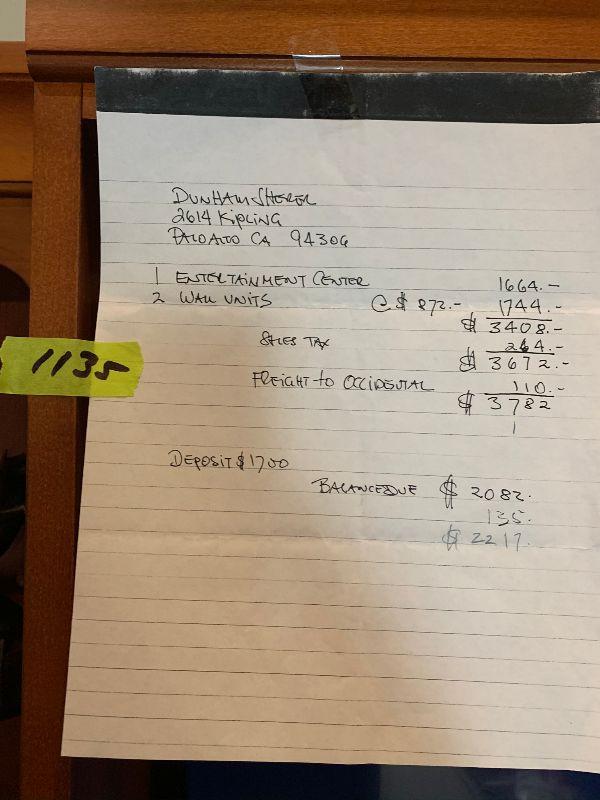 DUNHAM SHERER
2614 KIPLING
PALO ALTO CA 94306
1 ENTERTAINMENT CENTER 1664.-
2 WALL UNITS @ $ 872.- 1744.-
$ 3408.-
SALES TAX 264.-
$ 3672.-
1135
FREIGHT to OCCIDENTAL 110.-
$ 3782
DEPOSIT $ 1700
BALANCE DUE $ 2082.
135.
$ 2217.